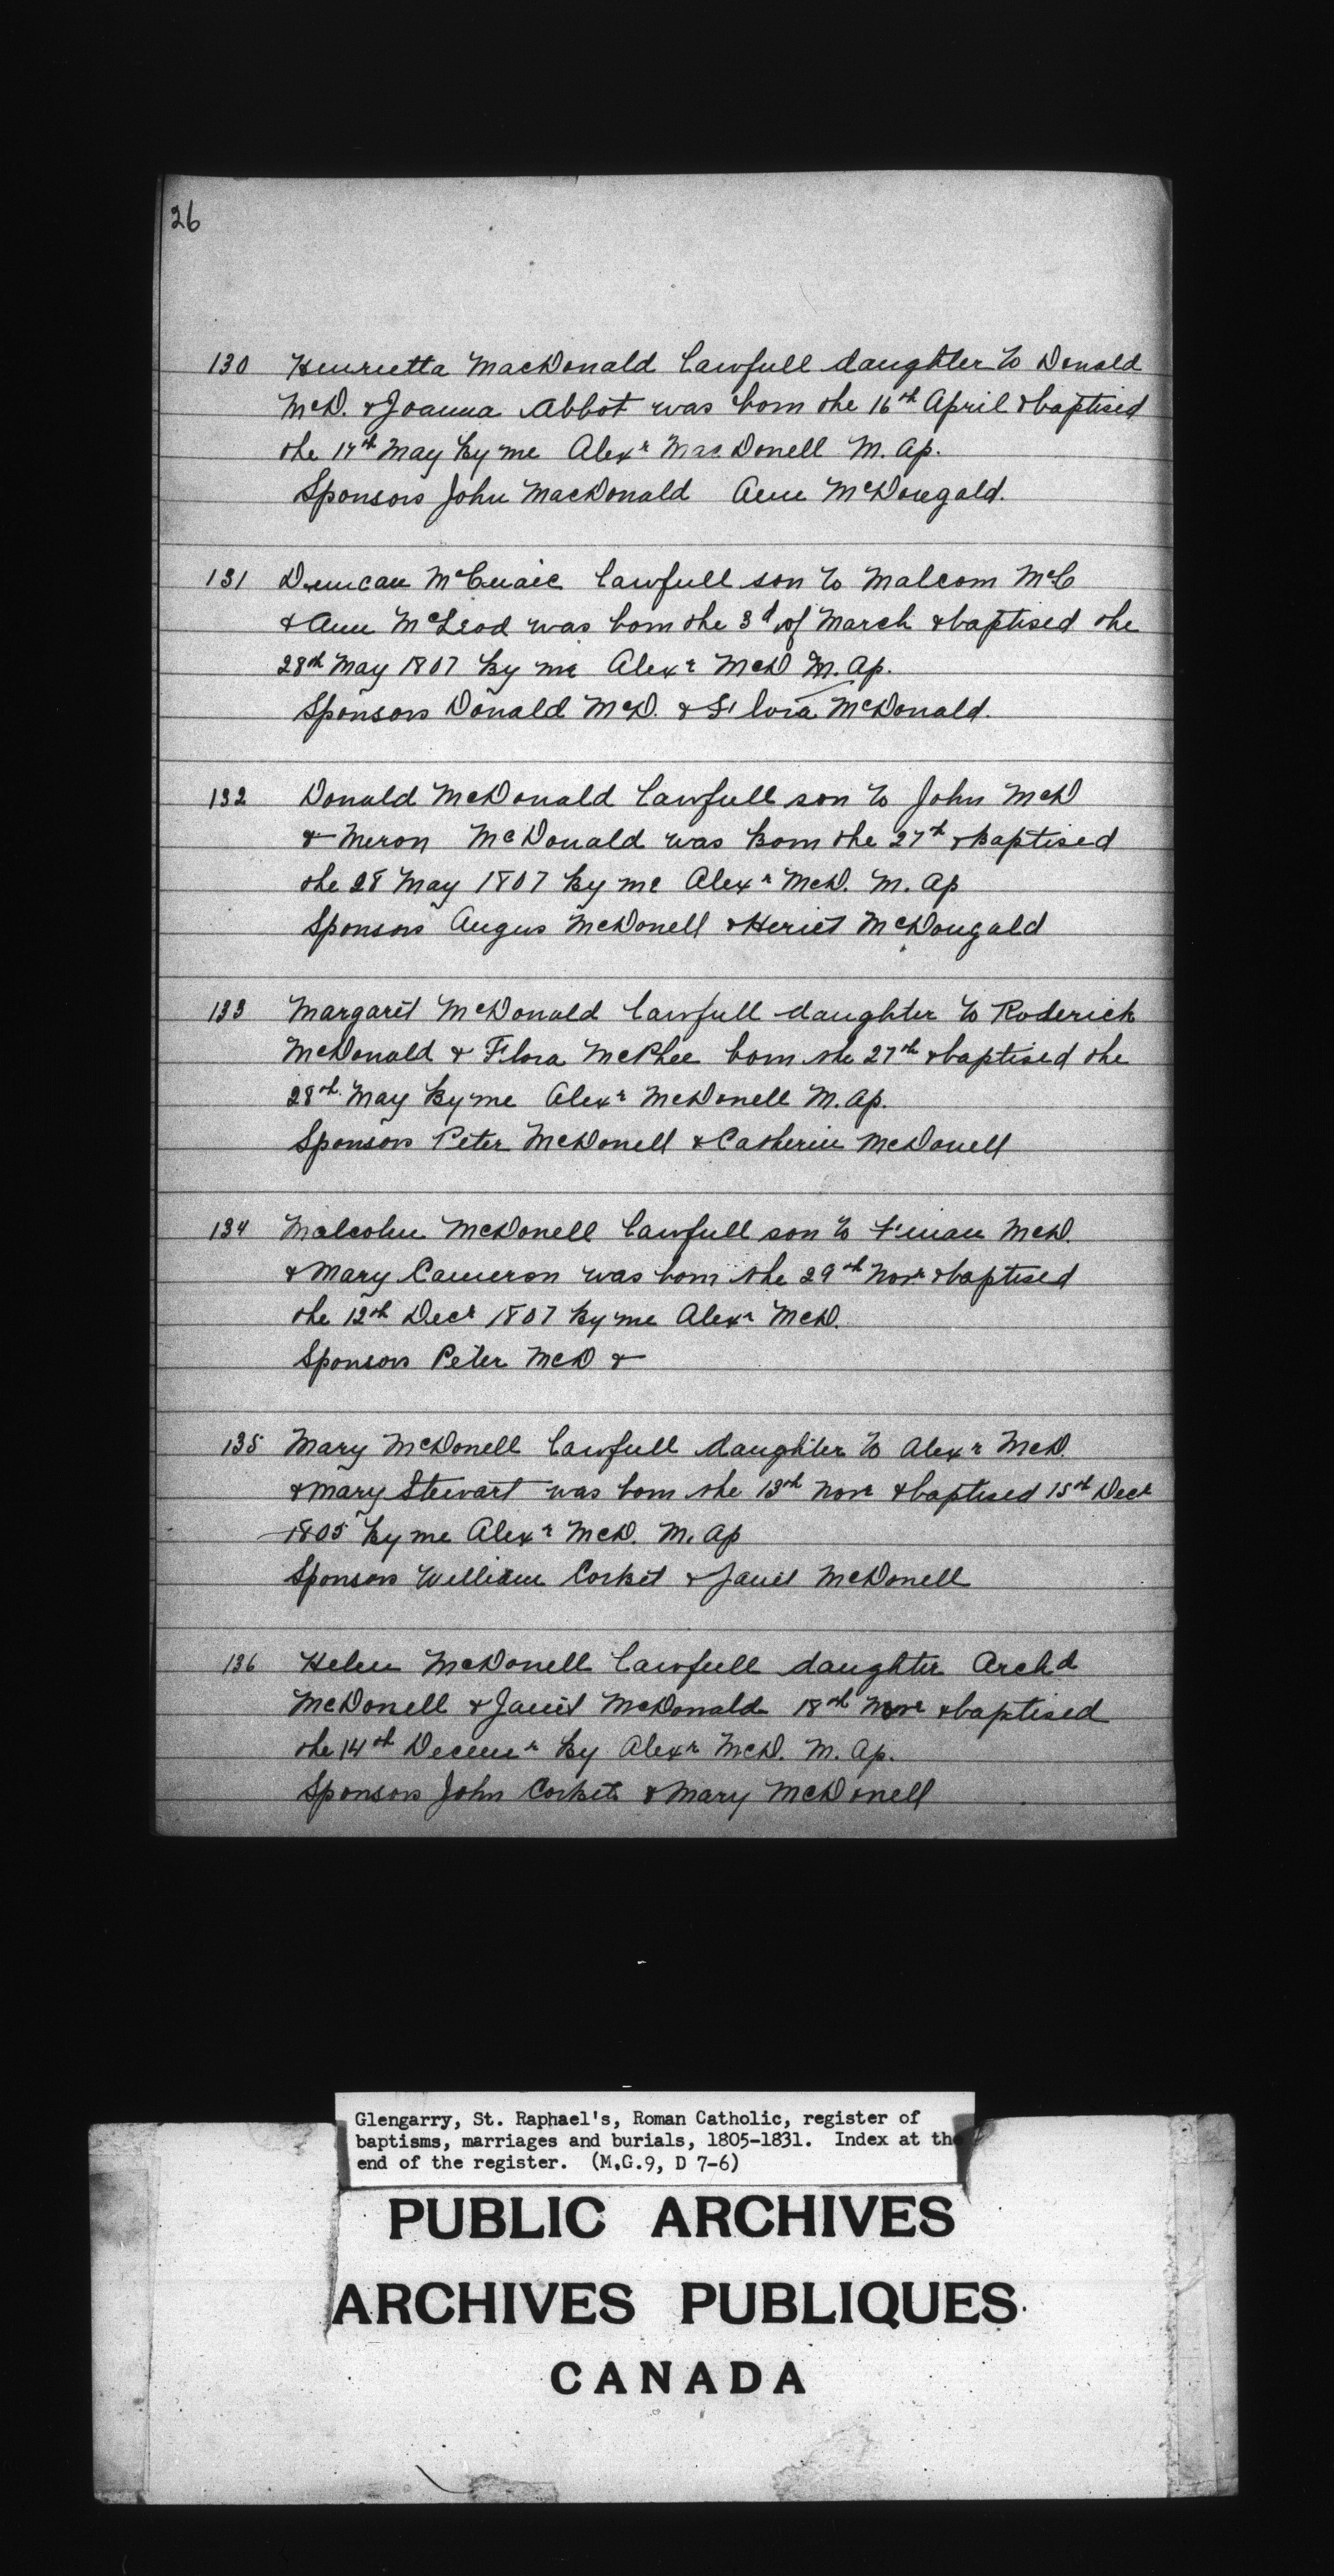 26
130 Henrietta MacDonald lawfull daughter to Donald
McD. & Joanna Abbot was born the 16th April & baptised
the 17th May by me Alexr MacDonell M. Ap.
Sponsors John MacDonald Ann McDougald.
131 Duncan McCuaic lawfull son to Malcom McC
& Ann McLeod was born the 3d of March & baptised the
28th May 1807 by me Alexr McD M. Ap.
Sponsors Donald McD. & Flora McDonald.
132 Donald McDonald lawfull son to John McD
& Meron McDonald was born the 27th & baptised
the 28 May 1807 by me Alexr McD. M. Ap
Sponsors Angus McDonell & Heriet McDougald
133 Margaret McDonald lawfull daughter to Roderick
McDonald & Flora McPhee born the 27th & baptised the
28th May by me Alexr McDonell M. Ap.
Sponsors Peter McDonell & Catherin McDonell
134 Malcolm McDonell lawfull son to Finan McD.
& Mary Cameron was born the 29th Novr & baptised
the 12th Decr 1807 by me Alexr McD.
Sponsors Peter McD &
135 Mary McDonell lawfull daughter to Alexr McD.
& Mary Stewart was born the 13th Novr & baptised 15th Decr
1805 by me Alexr McD. M. Ap
Sponsors William Corbet & Janet McDonell
136 Helen McDonell lawfull daughter Archd
McDonell & Janet McDonald 18th Novr & baptised
the 14th Decemr by Alexr McD. M. Ap.
Sponsors John Corbet & Mary McDonell
Glengarry, St. Raphael's, Roman Catholic, register of
baptisms, marriages and burials, 1805-1831. Index at the
end of the register. (M.G.9, D 7-6)
PUBLIC ARCHIVES
ARCHIVES PUBLIQUES
CANADA